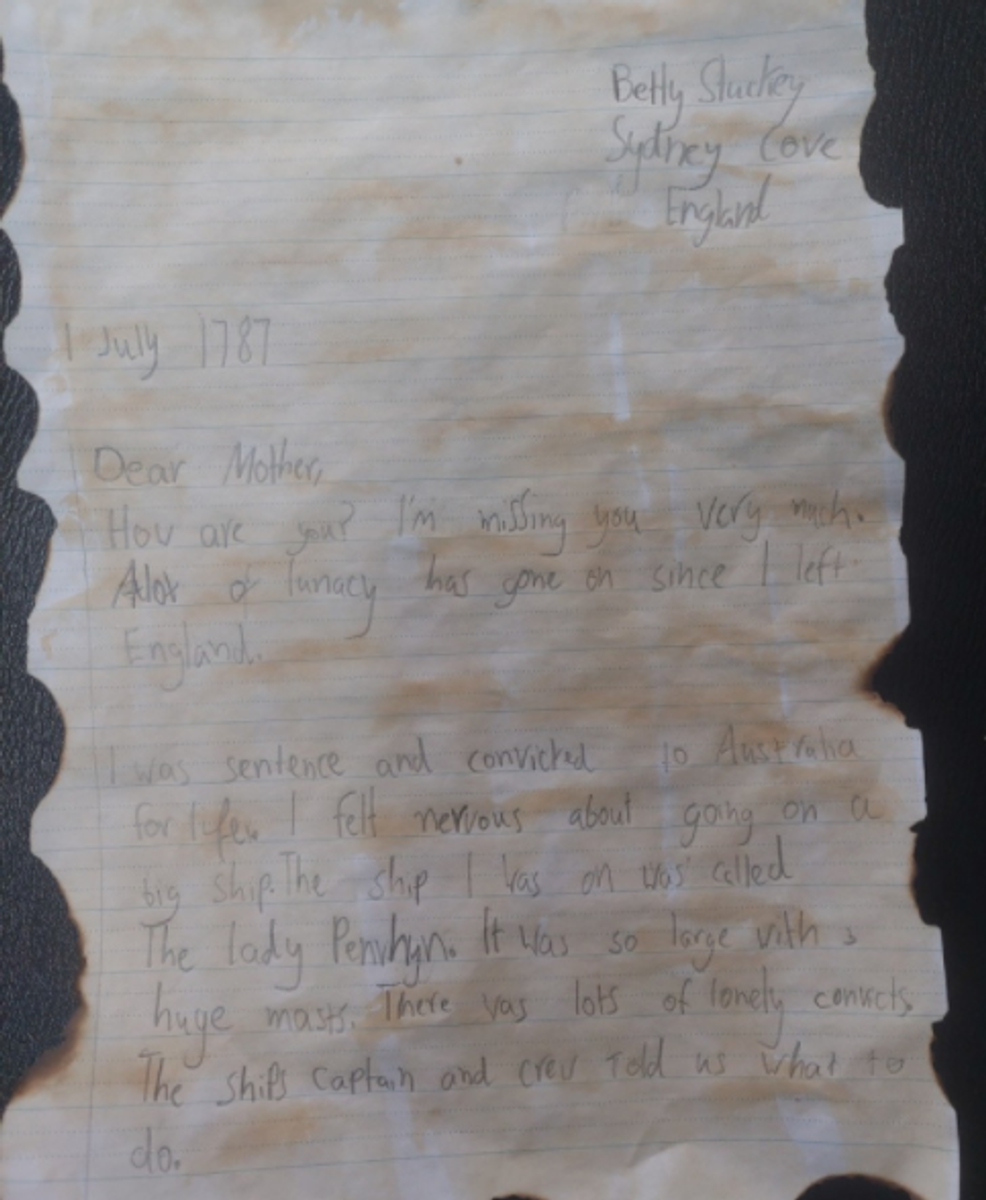 Betty Stuckey
Sydney Cove
England
1 July 1787
Dear Mother,
How are you? I'm missing you very much.
Alot of lunacy has gone on since I left
England.
I was sentence and convicted to Australia
for life. I felt nervous about going on a
big ship. The ship I was on was called
The lady Penrhyn. It was so large with 3
huge masts. There was lots of lonely convicts.
The ships captain and crew told us what to
do.